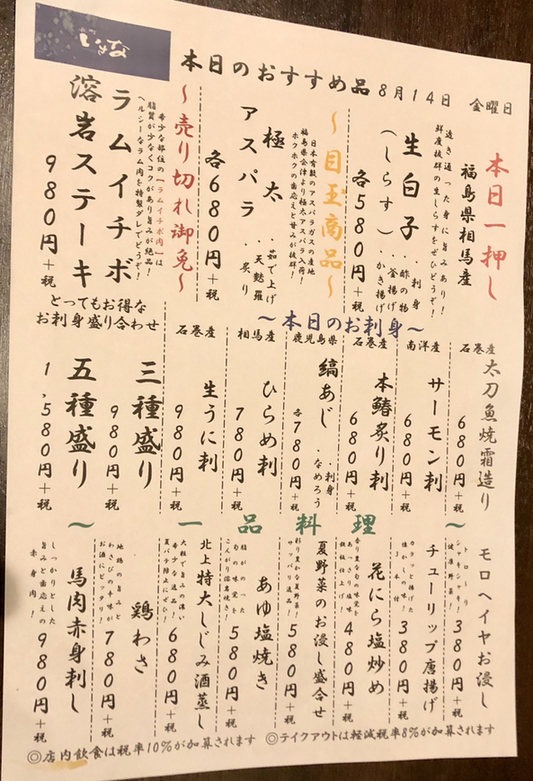 いすな
本日のおすすめ品 8月14日 金曜日
本日一押し
福島県相馬産
透き通った身に旨みあり!
鮮度抜群の生しらすをぜひどうぞ!
生白子
(しらす)
・刺身
・酢の物
・釜揚げ
・かき揚げ
各580円+税
~目玉商品~
日本有数のアスパラガスの産地
福島県会津より極太アスパラ入荷!
ホクホクの歯応えと甘みが抜群!
極太
アスパラ
・茹で上げ
・天麩羅
・炙り
各680円+税
~売り切れ御免~
希少な部位の「ラムイチボ肉」は
脂質が少なくコクがあり旨みが絶品!
ヘルシーなラム肉を特製ダレでどうぞ!
ラムイチボ
溶岩ステーキ
980円+税
~本日のお刺身~
石巻産
太刀魚焼霜造り
680円+税
南洋産
サーモン刺
680円+税
石巻産
本鰆炙り刺
680円+税
鹿児島県
縞あじ
・刺身
・なめろう
各780円+税
相馬産
ひらめ刺
780円+税
石巻産
生うに刺
980円+税
とってもお得な
お刺身盛り合わせ
三種盛り
980円+税
五種盛り
1,580円+税
~一品料理~
モロヘイヤお浸し
380円+税
チューリップ唐揚げ
380円+税
花にら塩炒め
480円+税
夏野菜のお浸し盛合せ
580円+税
あゆ塩焼き
580円+税
北上特大しじみ酒蒸し
680円+税
鶏わさ
地鶏の旨みと
わさびの辛味が
お酒にピッタリ!
780円+税
馬肉赤身刺し
しっかりした
旨みと歯応えの
赤身肉!
980円+税
◎店内飲食は税率10%が加算されます ◎テイクアウトは軽減税率8%が加算されます